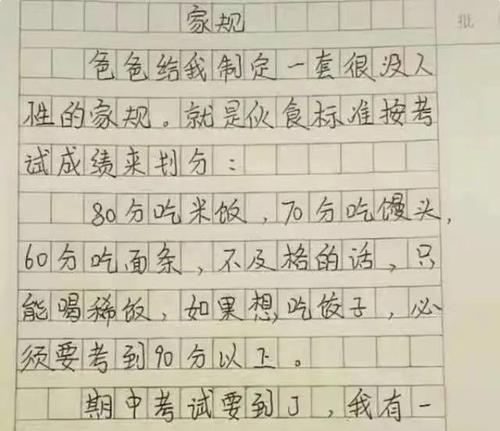 批
家规
爸爸给我制定一套很没人
性的家规。就是伙食标准按考
试成绩来划分：
80分吃米饭，70分吃馒头，
60分吃面条，不及格的话，只
能喝稀饭，如果想吃饺子，必
须要考到90分以上。
期中考试要到了，我有一